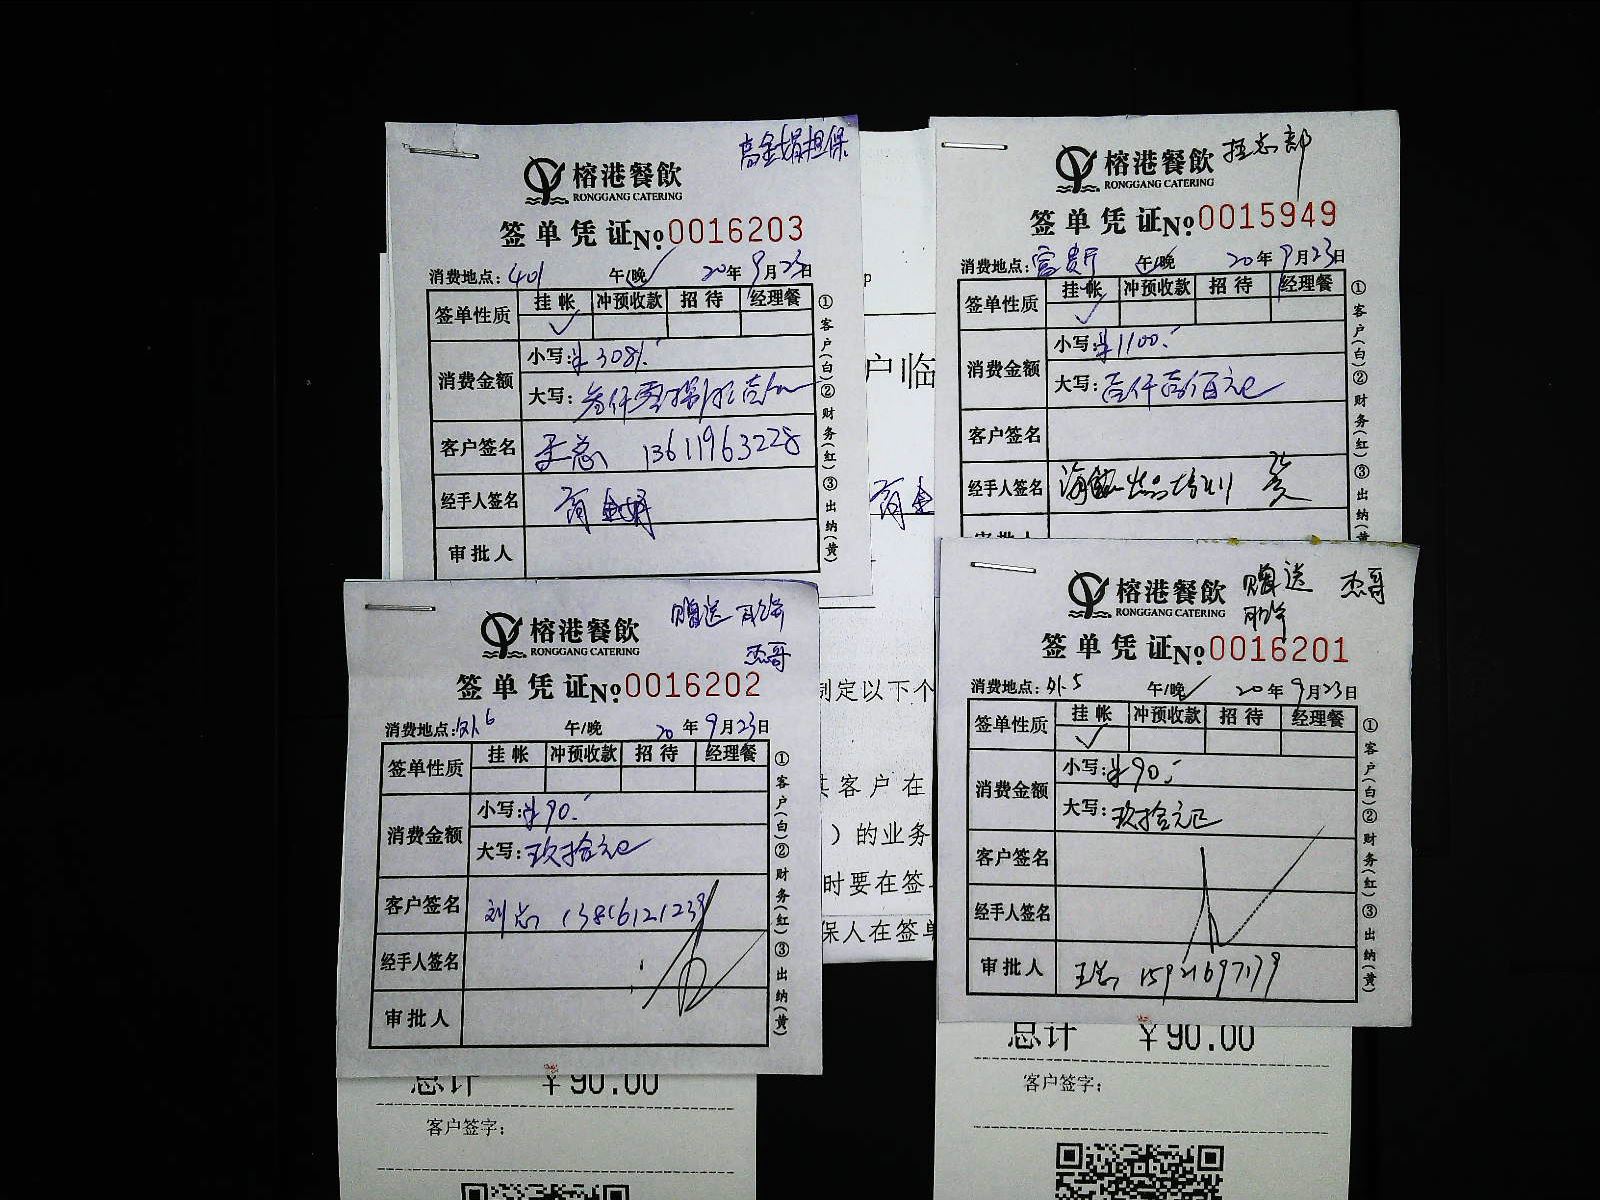 高金娟担保
榕港餐飲
RONGGANG CATERING
签单凭证No:0016203
消费地点:401 午/晚✓ 20年9月23日
签单性质 挂帐 冲预收款 招待 经理餐
✓
消费金额 小写:¥3081.-
大写:叁仟零捌拾壹元
客户签名 王总 13611963228
经手人签名 高金娟
审批人
①客户(白)②财务(红)③出纳(黄)
榕港餐飲
RONGGANG CATERING
签单凭证No:0015949
消费地点:富贵厅 午/晚 20年9月23日
签单性质 挂帐 冲预收款 招待 经理餐
✓
消费金额 小写:¥1100.-
大写:壹仟壹佰元
客户签名
经手人签名
审批人
①客户(白)②财务(红)③出纳(黄)
户临
高金
制定以下个
客户在
)的业务
时要在签
保人在签单
赠送
杰哥
榕港餐飲
RONGGANG CATERING
签单凭证No:0016202
消费地点:外6 午/晚 20年9月23日
签单性质 挂帐 冲预收款 招待 经理餐
消费金额 小写:¥90.-
大写:玖拾元
客户签名 刘总 13816121239
经手人签名
审批人
①客户(白)②财务(红)③出纳(黄)
总计 ¥90.00
客户签字:
赠送 杰哥
榕港餐飲
RONGGANG CATERING
签单凭证No:0016201
消费地点:外5 午/晚✓ 20年9月23日
签单性质 挂帐 冲预收款 招待 经理餐
✓
消费金额 小写:¥90.-
大写:玖拾元
客户签名
经手人签名
审批人 王总 15921697179
①客户(白)②财务(红)③出纳(黄)
总计 ¥90.00
客户签字: